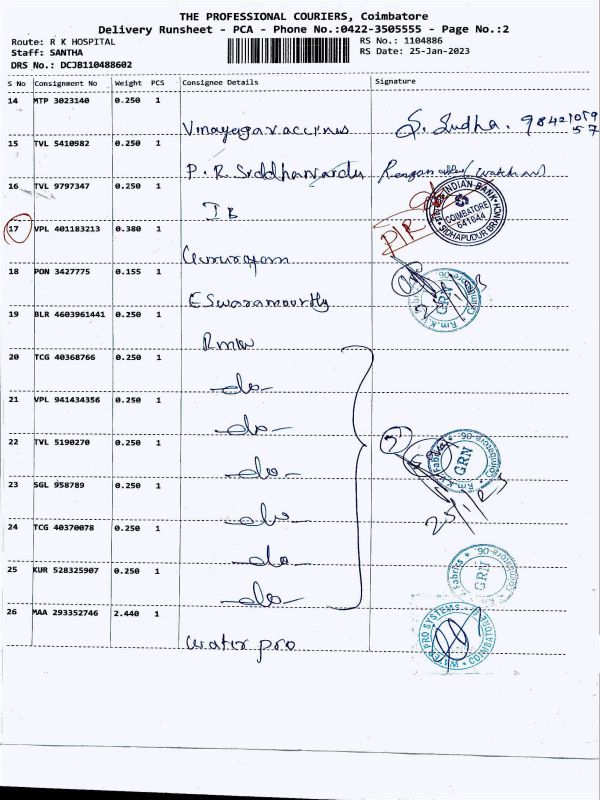 THE PROFESSIONAL COURIERS, Coimbatore
Delivery Runsheet - PCA - Phone No.:0422-3505555 - Page No.:2
Route: R K HOSPITAL
Staff: SANTHA
DRS No.: DCJB110488602
RS No.: 1104886
RS Date: 25-Jan-2023
S No Consignment No Weight PCS Consignee Details Signature
14 MTP 3023140 0.250 1
S. Sudha. 98421059
57
15 TVL 5410982 0.250 1
P. R. Siddhanardu
16 TVL 9797347 0.250 1
IB
INDIAN BANK
COIMBATORE
641044
SIDHAPUDUR BRANCH
17 VPL 401183213 0.380 1
18 PON 3427775 0.155 1
Eswaramoorthy
GRN
Coimbatore-06
19 BLR 4603961441 0.250 1
RMKV
20 TCG 40368766 0.250 1
-do-
21 VPL 941434356 0.250 1
-do-
22 TVL 5190270 0.250 1
-do-
Rm.K.V Fabrics
GRN
Coimbatore-06.
23 SGL 958789 0.250 1
-do-
24 TCG 40370078 0.250 1
-do-
25 KUR 528325907 0.250 1
-do-
Fabrics
GRN
Coimbatore-06.
26 MAA 293352746 2.440 1
water pro
WATER PRO SYSTEMS
COIMBATORE